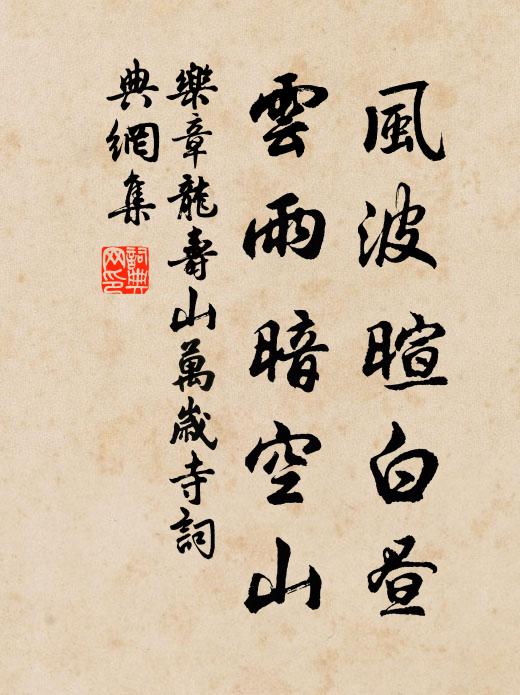 風波暄白昼
雲雨暗空山
樂章龍壽山萬歲寺詞
典網集
詞典網印